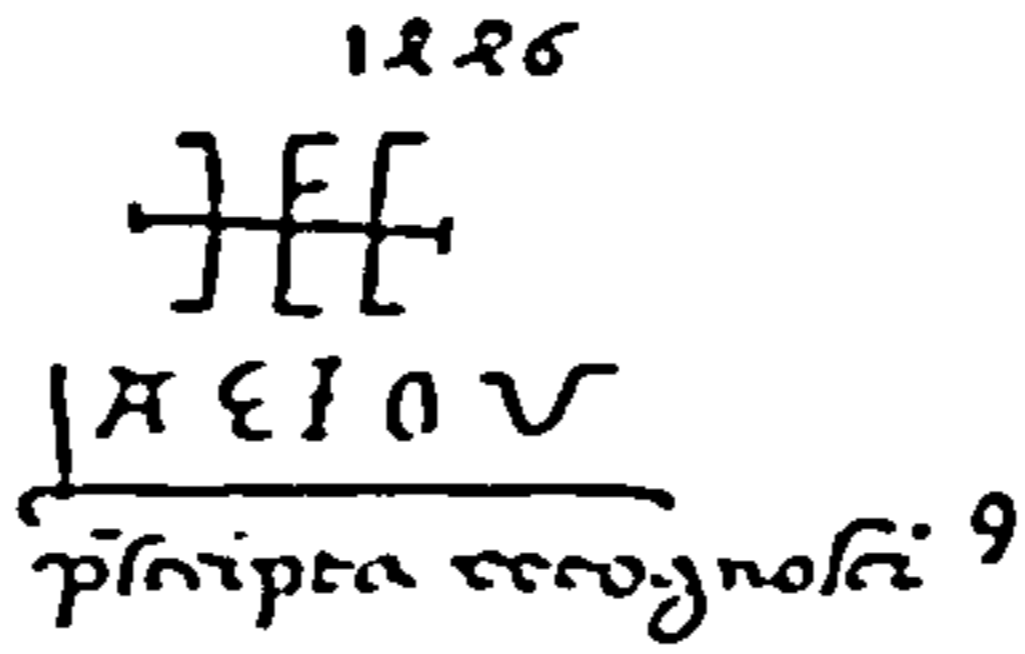 1226
A E I O V
p̄ſcripta recognoſci ꝯ